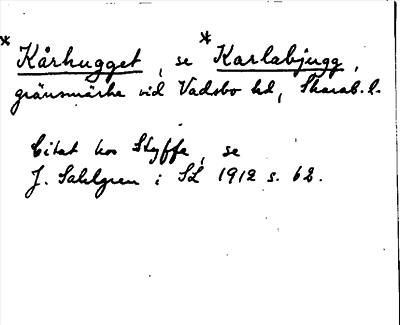 * Kårhugget, se * Karlabjugg,
gränsmärke vid Vadsbo hd, Skarab. l.
Citat hos Styffe, se
J. Sahlgren i SL 1912 s. 62.